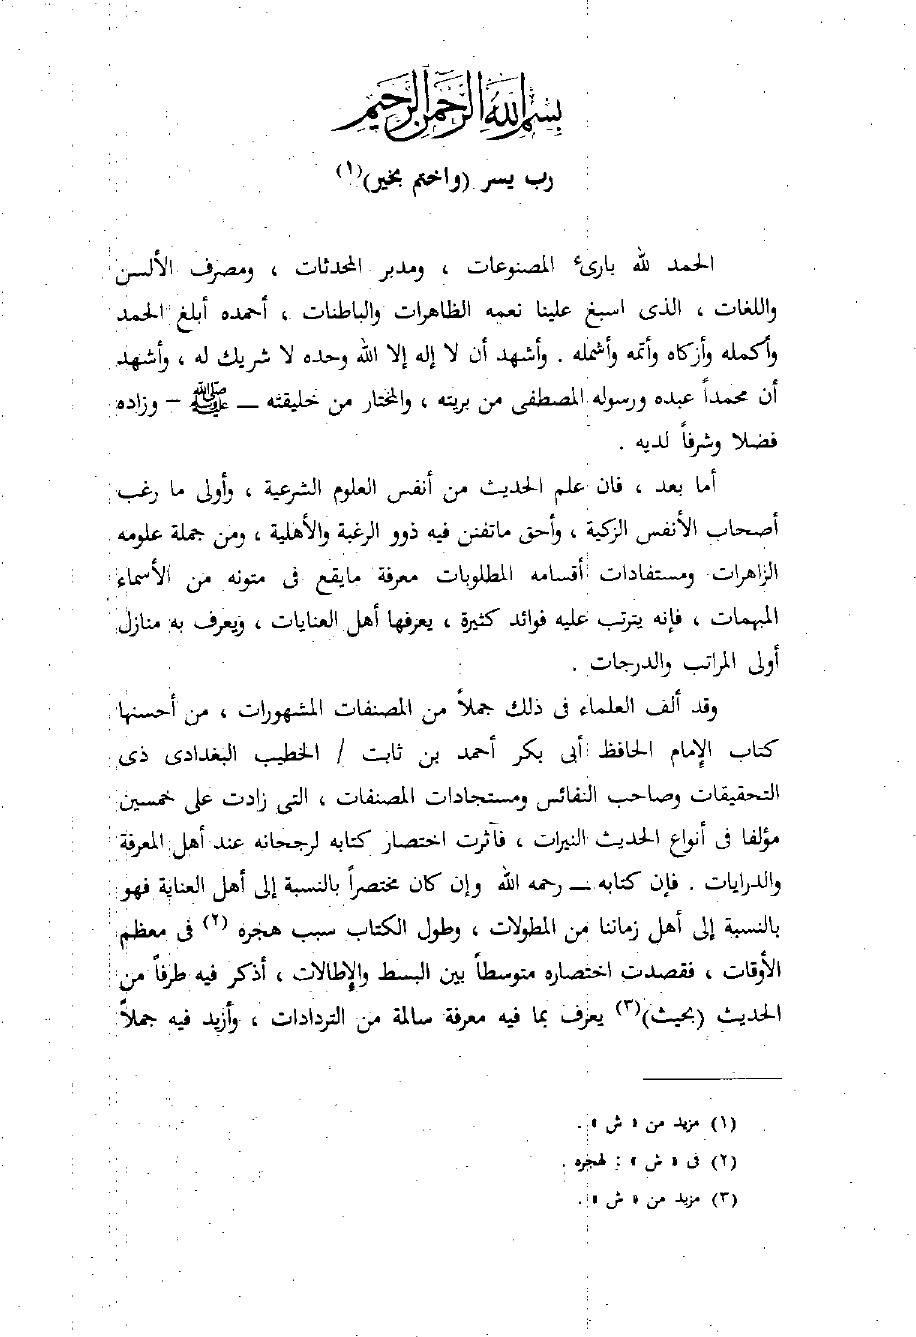 بسم الله الرحمن الرحيم
رب يسر (واختم بخير)(١)
الحمد لله بارىء المصنوعات ، ومدبر المحدثات ، ومصرف الألسن
واللغات ، الذى اسبغ علينا نعمه الظاهرات والباطنات ، أحمده أبلغ الحمد
وأكمله وأزكاه وأتمه وأشمله . وأشهد أن لا إله إلا الله وحده لا شريك له ، وأشهد
أن محمداً عبده ورسوله المصطفى من بريته ، والمختار من خليقته ــ ﷺ – وزاده
فضلا وشرفاً لديه .
أما بعد ، فان علم الحديث من أنفس العلوم الشرعية ، وأولى ما رغب
أصحاب الأنفس الزكية ، وأحق ماتفنن فيه ذوو الرغبة والأهلية ، ومن جملة علومه
الزاهرات ومستفادات أقسامه المطلوبات معرفة مايقع فى متونه من الأسماء
المبهمات ، فإنه يترتب عليه فوائد كثيرة ، يعرفها أهل العنايات ، ويعرف به منازل
أولى المراتب والدرجات .
وقد ألف العلماء فى ذلك جملاً من المصنفات المشهورات ، من أحسنها
كتاب الإمام الحافظ أبى بكر أحمد بن ثابت / الخطيب البغدادى ذى
التحقيقات وصاحب النفائس ومستجادات المصنفات ، التى زادت على خمسين
مؤلفا فى أنواع الحديث النيرات ، فآثرت اختصار كتابه لرجحانه عند أهل المعرفة
والدرايات . فإن كتابه ــ رحمه الله وإن كان مختصراً بالنسبة إلى أهل العناية فهو
بالنسبة إلى أهل زماننا من المطولات ، وطول الكتاب سبب هجره (٢) فى معظم
الأوقات ، فقصدت اختصاره متوسطاً بين البسط والإطالات ، أذكر فيه طرفاً من
الحديث (بحيث)(٣) يعرف بما فيه معرفة سالمة من الترددات ، وأزيد فيه جملاً
(١) مزيد من « ش » .
(٢) فى « ش » : لهجره .
(٣) مزيد من « ش » .